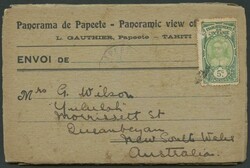 Panorama de Papeete - Panoramic view of
L. GAUTHIER, Papeete - TAHITI
ENVOI DE
Mrs G. Wilson
"Yululah"
Morrissett St
Queanbeyan
New South Wales
Australia